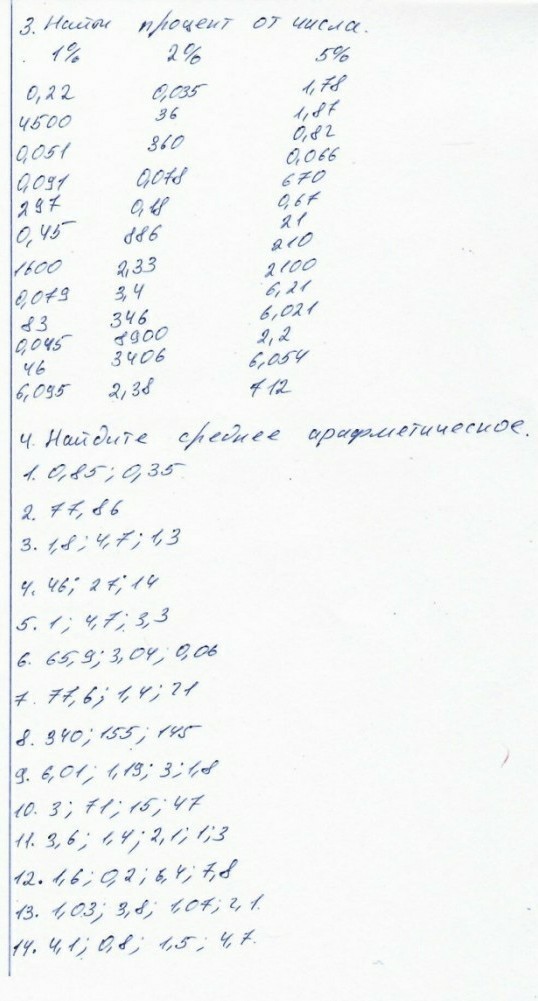 3. Найти процент от числа.
1% 2% 5%
0,22 0,035 1,78
4500 36 1,87
0,051 360 0,82
0,091 0,078 0,066
297 0,18 670
0,45 886 0,67
1600 2,33 21
0,079 3,4 210
83 346 2100
0,045 8900 6,21
46 3406 6,021
6,095 2,38 2,2
6,054
712
4. Найдите среднее арифметическое.
1. 0,85; 0,35
2. 77, 86
3. 1,8; 4,7; 1,3
4. 46; 27; 14
5. 1; 4,7; 3,3
6. 65,9; 3,04; 0,06
7. 77,6; 1,4; 21
8. 340; 155; 145
9. 6,01; 1,19; 3; 1,8
10. 3; 71; 15; 47
11. 3,6; 1,4; 2,1; 1;3
12. 1,6; 0,2; 6,4; 7,8
13. 1,03; 3,8; 1,07; 2,1.
14. 4,1; 0,8; 1,5; 4,7.